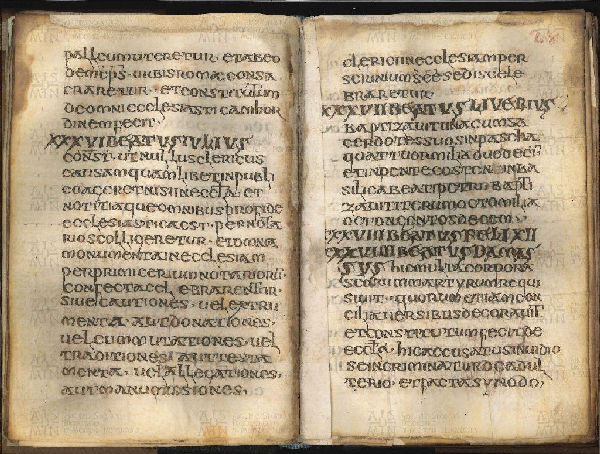 palleum uteretur · et ab eo
dem eps urbis romae consa
craretur · et constitutum
de omni ecclesiastico
ordinem fecit
XXXVI BEATUS IULIUS
const · ut nullus clericus
causam quamlibet in publi
co ageret nisi in eccla · et
notitia que omnibus pro fide
ecclesiastica est · per nota
rios colligeretur · et omnia
monumenta in ecclesiam
per primicerium notariorū
confecta celebrarentur ·
siue cautiones · uel extru
menta · aut donationes ·
uel commutationes · uel
traditiones · aut testa
menta · uel allegationes ·
aut manumissiones ·
clerici in ecclesiam per
scrinium sce sedis cele
braretur
XXXVII BEATUS LIVERIUS
baptizauit in
cerdotes suos in pascha
quattuor milia duodeci
et in pentecosten in ba
silica beati petri bapti
zauit iterum octo milia
octogentos decem ·
XXXVIII BEATUS FELIX II
XXXVIIII BEATUS DAMAS
SUS hic multa corpora
scorum martyrum requi
siuit · quorum etiam con
cilia uersibus decorauit
et constitutum fecit de
eccla · hic accusatus inuidio
se incriminatur de adul
terio · et facta synodo ·